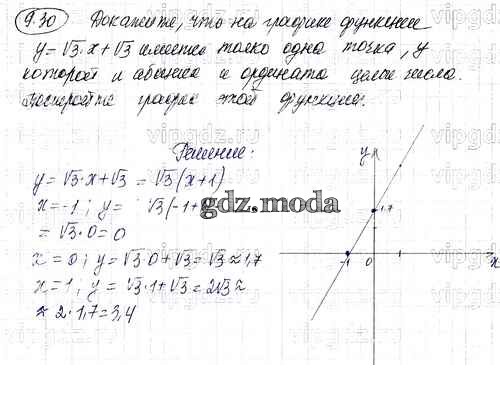 9.30 Докажите, что на графике функции
y = √3·x + √3 имеется только одна точка, у
которой и абсцисса и ордината целые числа.
Постройте график этой функции.
Решение:
y = √3·x + √3 = √3(x+1)
x = -1; y = √3(-1+
= √3·0 = 0
x = 0; y = √3·0 + √3 = √3 ≈ 1,7
x = 1, y = √3·1 + √3 = 2√3 ≈
≈ 2·1,7 = 3,4
y
1,7
-1 0 x
gdz.moda
vipgdz.ru